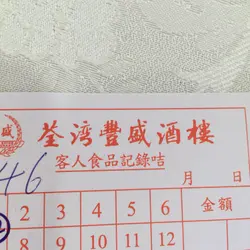 盛
荃灣豐盛酒樓
客人食品記錄咭
46
月 日
2 3 4 5 6 金額
8 9 10 11 12